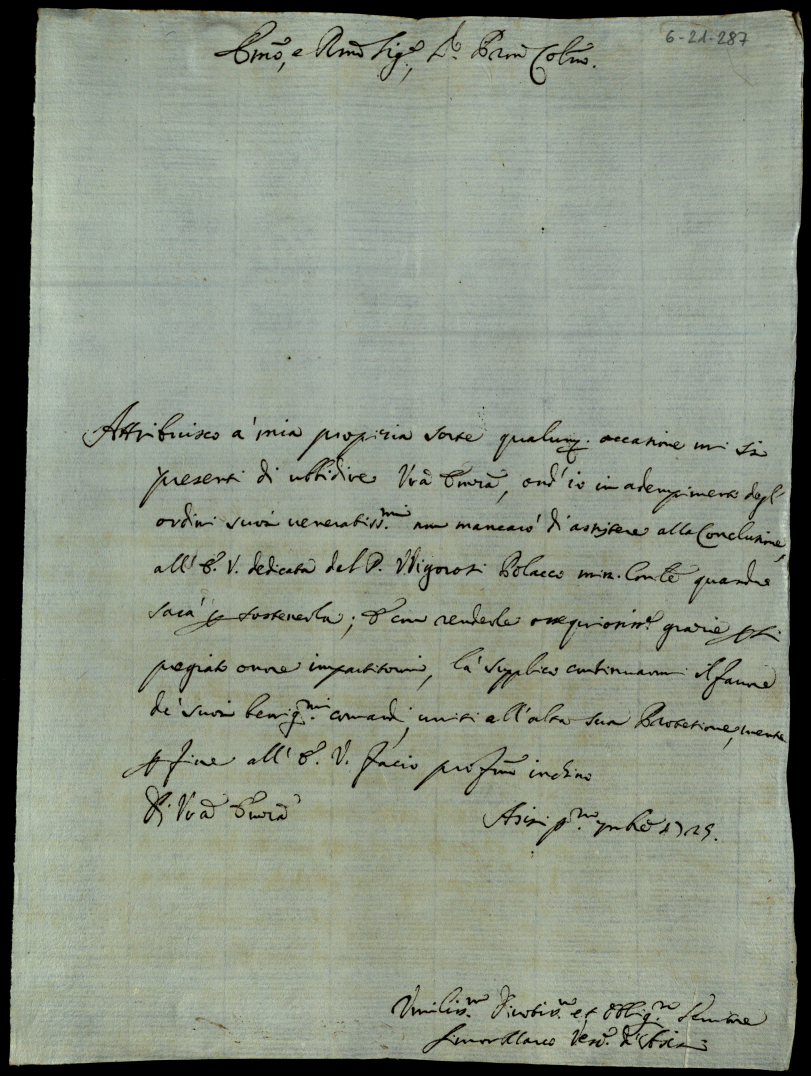 6-21-287
Emõ, e Rmõ Sig.e, P.e Prõn Colmõ.
Attribuisco a' mia propizia sorte qualunq. occasione mi si
presenti di ubbidire Vrã Emza, ond' io in adempimento degl'
ordini suoi veneratiss.mi non mancarò d'assistere alla Conclusione,
all' E. V. dedicata dal P. Polacco min. Contle quando
sarà p sostenerla; E con renderle ossequiosiss.e grazie p si
pregiato onore impartitomi, là supplico continuarmi il favore
de' suoi benig.mi comandi, uniti all' alta sua Protetione, mentre
p fine all' E. V. faccio profmo inchino
Di Vrã Emza
Asisi p.mo 7mbre 1725.
Umiliss.mo Divotiss.mo et Obblig.mo Servitore
Vesc.o d'Asisi